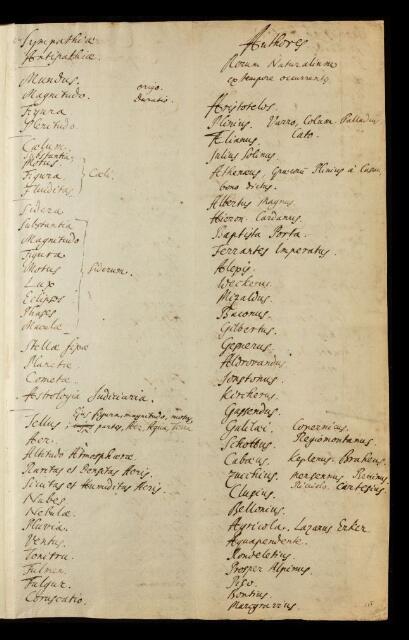 Sympathiæ
Antipathiæ.
Mundus. origo.
Magnitudo. duratio.
Figura
Plenitudo.
Cœlum.
Substantia
Motus
Figura Cœli.
Fluiditas
Sidera
Substantia
Magnitudo
Figura
Motus Siderum.
Lux
Eclipses
Phases
Maculæ
Stellæ fixæ
Planetæ
Cometæ.
Astrologia Judiciaria.
Tellus, ejus figura, magnitudo, motus,
partes, Aer, Aqua, Terra
Aer.
Altitudo Atmosphæræ.
Raritas et Densitas Aeris.
Siccitas et Humiditas Aeris.
Nubes
Nebulæ
Pluvia.
Ventus.
Tonitru.
Fulmen.
Fulgur.
Coruscatio.
Authores
Rerum Naturalium
ex tempore occurrentes
Aristoteles.
Plinius. Varro, Colum. Palladius
Ælianus. Cato.
Julius Solinus.
Athenæus, Græcorū Plinius à Casau,
bono dictus.
Albertus magnus.
Hieron. Cardanus.
Baptista Porta.
Ferrantes Imperatus.
Alexis.
Weckerus.
Mizaldus.
Baconus.
Gilbertus.
Gesnerus.
Aldrovandus.
Jonstonus.
Kircherus.
Gassendus.
Galilæi. Copernicus.
Schottus. Regiomontanus.
Cabæus. Keplerus. Braheus.
Zucchius. Mersennus.
Clusius. Ricciolo. Cartesius
Bellonius.
Agricola. Lazarus Erker
Aquapendente.
Rondeletius.
Prosper Alpinus.
Piso.
Bontius.
Marcgravius.